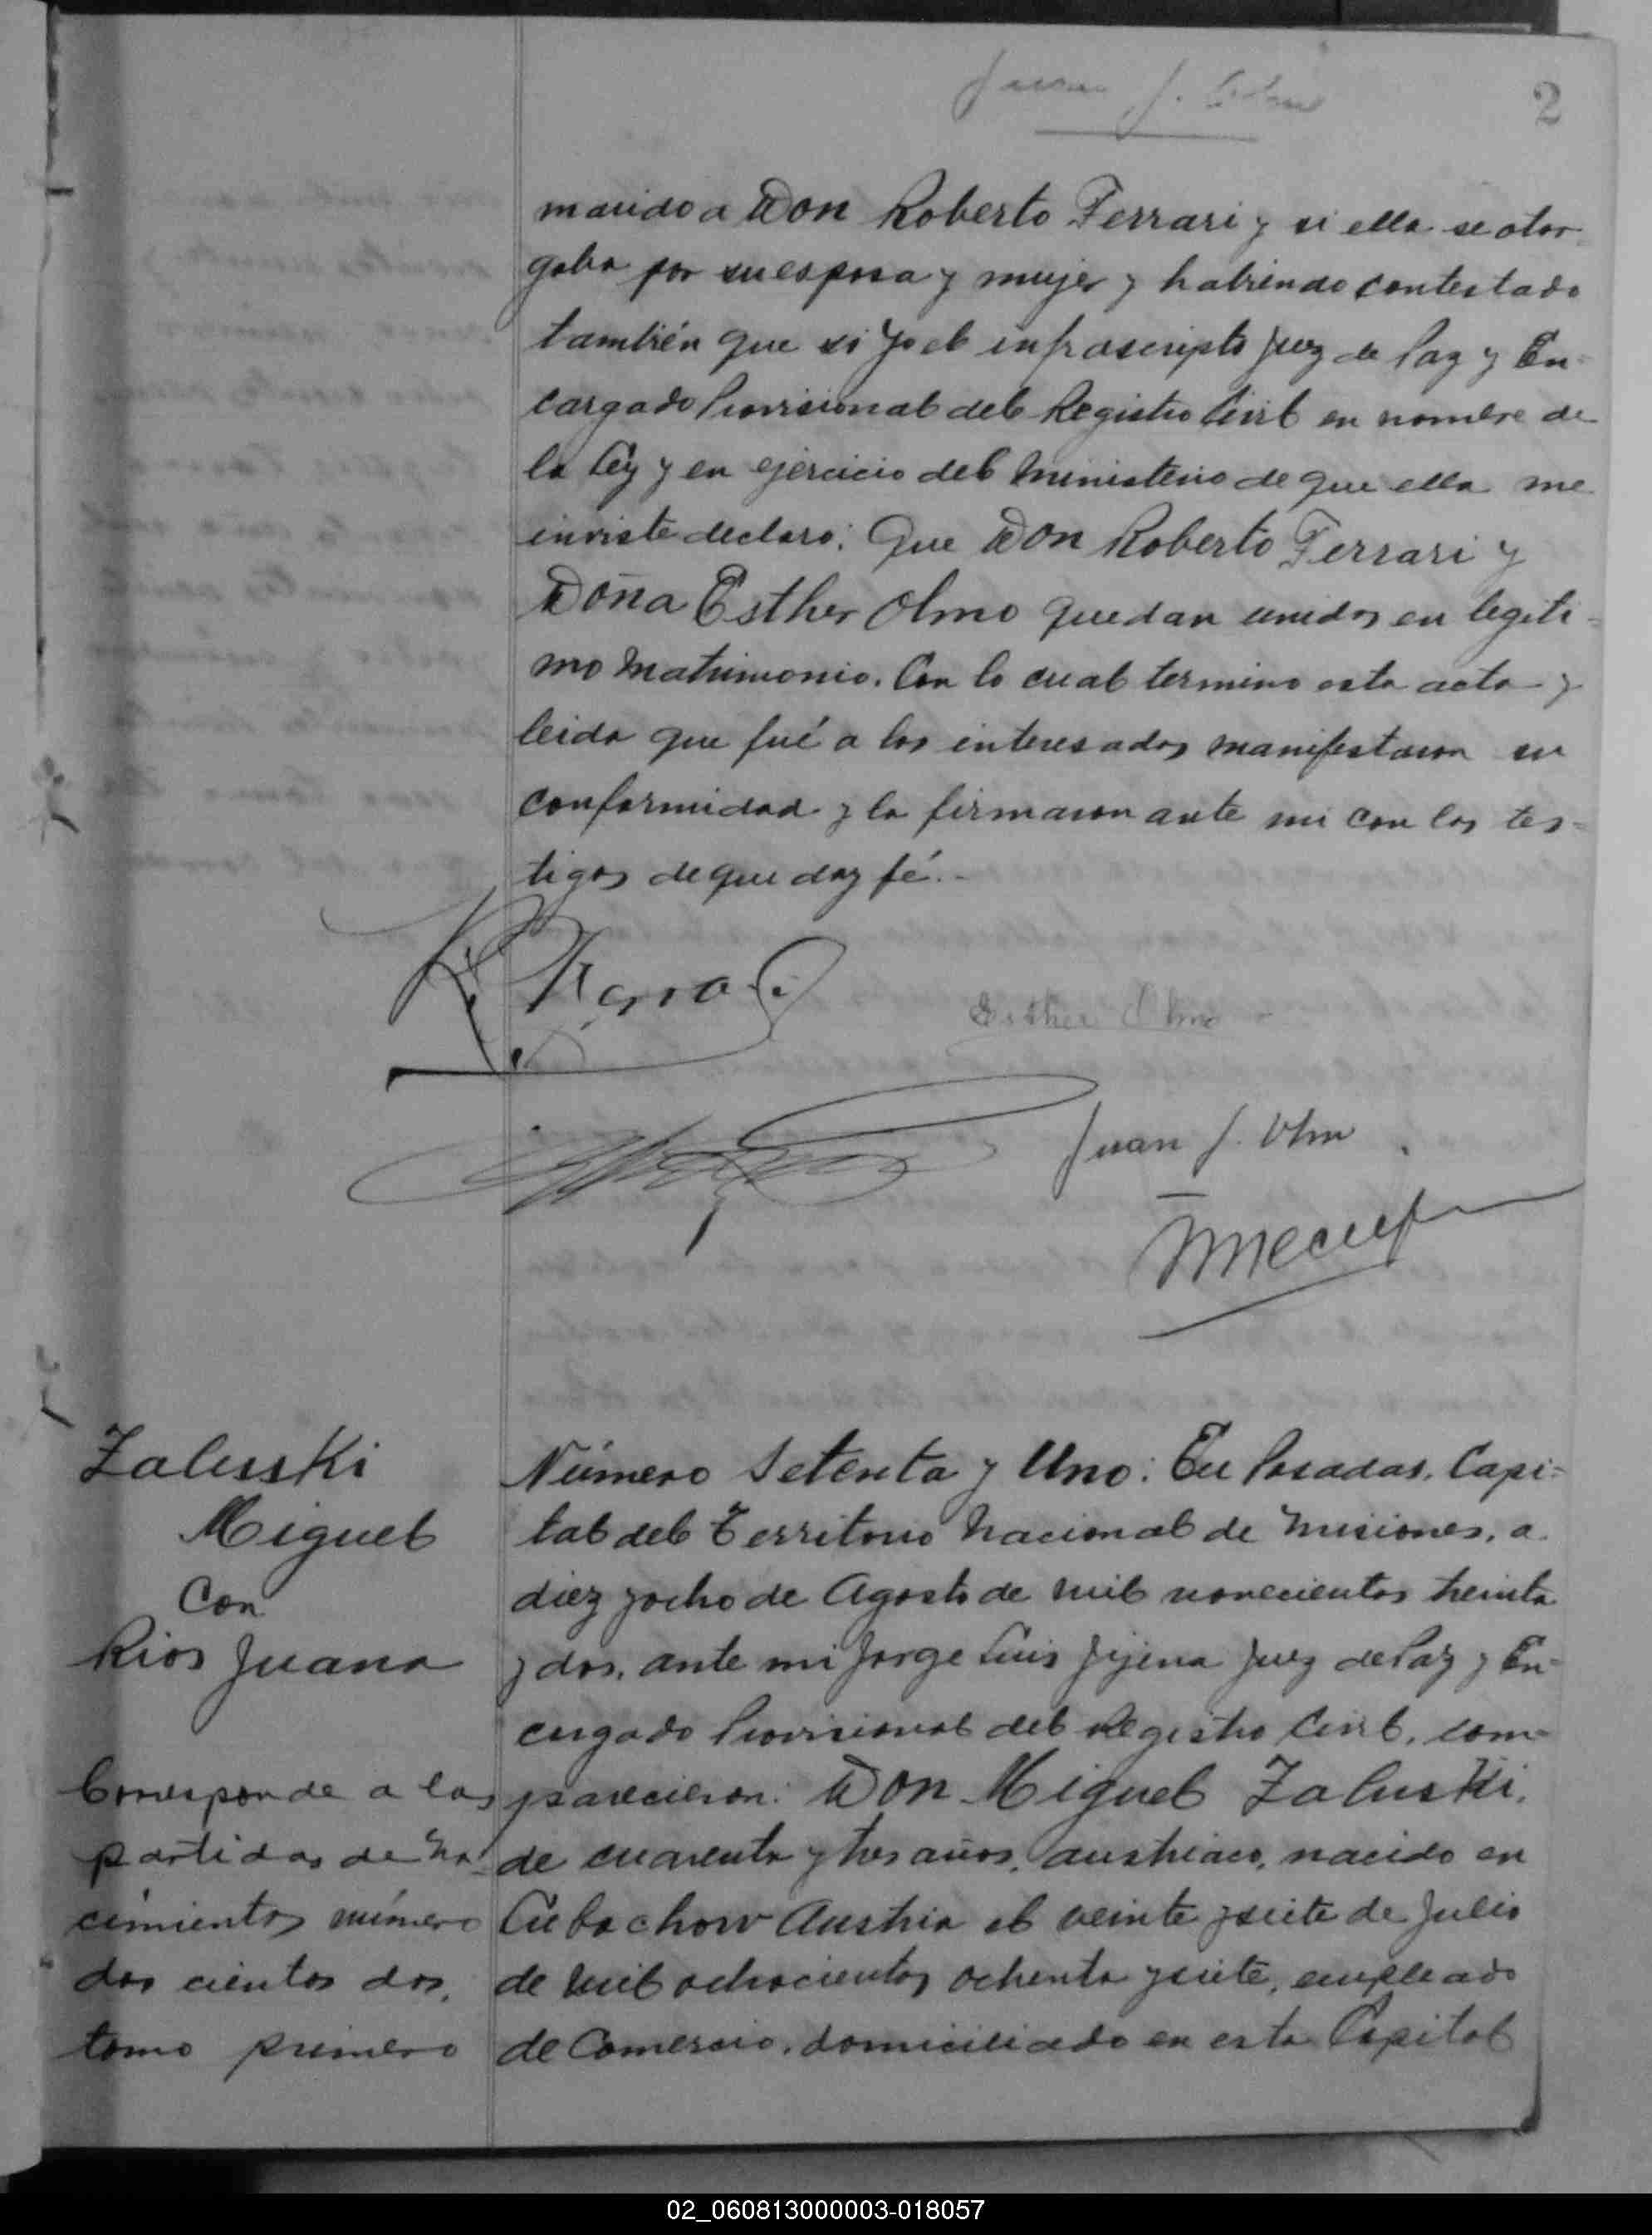 Juan J. Olmo
2
marido a Don Roberto Ferrari y si ella se otor-
gaba por su esposa y mujer y habiendo contestado
también que si Yo el infrascripto Juez de Paz y En-
cargado Provisional del Registro Civil en nombre de
la Ley y en ejercicio del Ministerio de que ella me
inviste declaro: Que Don Roberto Ferrari y
Doña Esther Olmo quedan unidos en legiti-
mo Matrimonio. Con lo cual termino esta acta y
leida que fué a los interesados manifestaron su
conformidad y la firmaron ante mi con los tes-
tigos de que doy fé.-
Esther Olmo
Juan J. Olmo
Zaluski
Miguel
Con
Rios Juana
Corresponde a las
partidas de Na-
cimientos número
dos cientos dos,
tomo primero
Número Setenta y Uno: En Posadas, Capi-
tal del Territorio Nacional de Misiones, a
diez y ocho de Agosto de mil novecientos treinta
y dos, ante mi Jorge Luis Jijena Juez de Paz y En-
cargado Provisional del Registro Civil, com-
parecieron: Don Miguel Zaluski,
de cuarenta y tres años, austriaco, nacido en
Lubachow Austria el veinte y siete de Julio
de mil ochocientos ochenta y siete, empleado
de Comercio, domiciliado en esta Capital
02_060813000003-018057